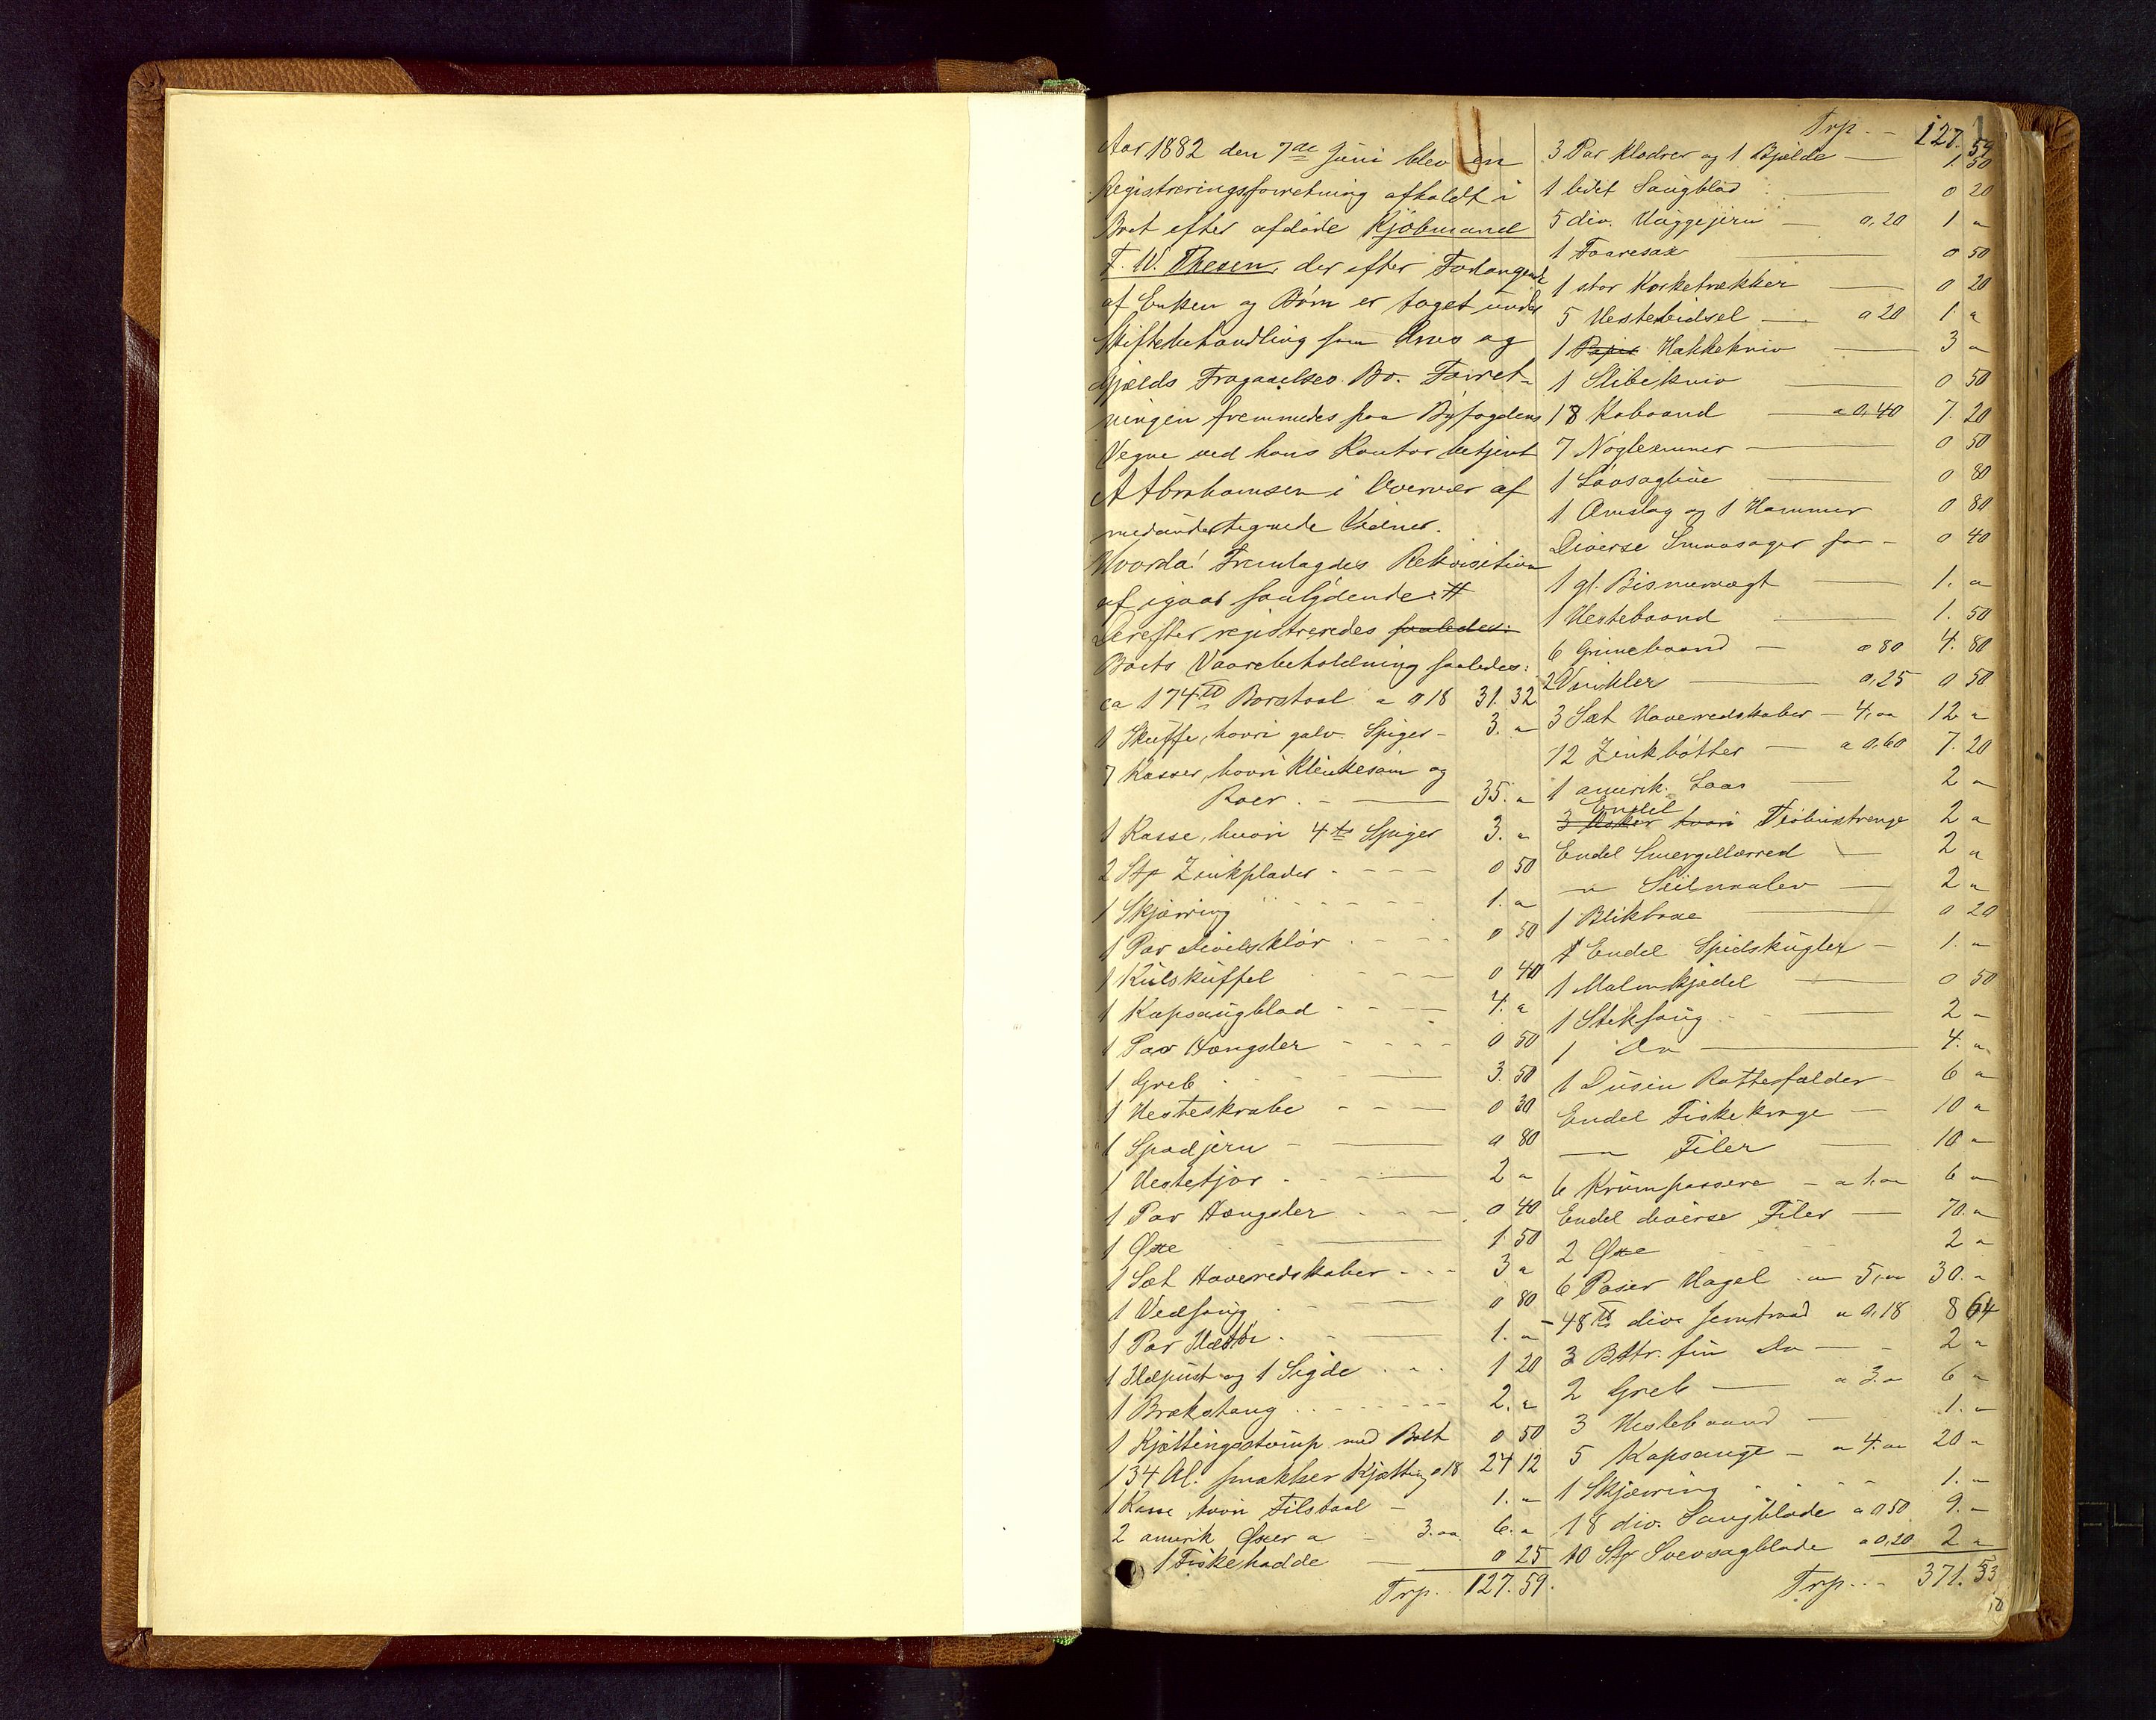 Aar 1882 den 7de Juni blev en
Registreringsforretning afholdt i
Boet efter afdøde Kjøbmand
F. W. Thesen, der efter Forlangende
af Enken og Børn er taget under
Skiftebehandling som Arvs og
Gjælds Fragaaelses Bo. Forret-
ningen fremmedes paa Byfogdens
Vegne ved hans Kontorbetjent
A Abrahamsen i Overvær af
medundertegnede Vidner.
Hvorda! Fremlagdes Rekvisition
af igaar saalydende: #
Derefter registreredes saaledes:
Boets Vaarebeholdning saaledes:
ca 174 ℔ Borstaal a 0 18 31. 32
1 Skuffe, hvori galv. Spiger - 3. "
7 Kasser, hvori Klinkesøm og
Roer. - 35. "
1 Kasse, hvori 4ts Spiger 3. "
2 Stp Zinkplader 0 50
1 Skjærring 1. "
1 Par Divelsklør 0 50
1 Kulskuffel 0 40
1 Kapsaugblad 4. "
1 Par Hængsler 0 50
1 Greb 3. 50
1 Hesteskrabe 0 30
1 Spadjern 0 80
1 Hestetjor 2 "
1 Par Hængsler 0 40
1 Øxe 1 50
1 Sæt Haveredskaber 3 "
1 Vedsaug 0 80
1 Par 1. "
1 Ildpust og 1 Sigde 1 20
1 Brækstang 2. "
1 Kjættingsstump med Bolt 0 50
134 Al. smækker Kjætting a 18 24 12
1 Kasse hvori Filstaal - 1. "
2 amerik Øxer a 3. 00 6. "
1 Fiskehadde 0 25
Trp. 127. 59.
Trp. - 127. 59
3 Par Klodrer og 1 Bjelde 1. 50
1 lidet Saugblad 0 20
5 div. Huggejern 0,20 1 "
1 Faaresax 0 50
1 stor Korketrækker 0 20
5 Hestebidsel 0 20 1. "
1 Papir Hakkekniv 3 "
1 Slibekniv 0 50
18 Kobaand a 0,40 7. 20
7 Nøgleemner 0 50
1 Løvsagbue 0 80
1 Omslag og 1 Hammer 0 80
Diverse Smaasager for - 0 40
1 gl. Bismervægt 1. "
1 Hestebaand 1. 50
6 Grimebaand a 80 4. 80
2 Vinkler 0,25 0 50
3 Sæt Haveredskaber - 4,00 12 "
12 Zinkbøtter a 0,60 7. 20
1 amerik. Laas 2 "
Endel
3 Æsker hvori Fiolinstrenge 2 "
Endel Smergellærred 2 "
" Seilnaaler 2 "
1 Blikboxe 0 20
1 Endel Spidskugler - 1. "
1 Malmkjedel 0 50
1 Stiksaug 2 "
1 Do 4. "
1 Dusin Rottefælder 6 "
Endel Fiskekroge 10 "
" Filer 10 "
6 Krumpassere - a 1.00 6 "
Endel diverse Filer 70. "
2 Øxe 2 "
6 Poser Hagel a 5,00 30. "
48 ℔ div. Jerntraad a 0,18 8 64
3 Bttr. fin Do 2 "
2 Greb a 3." 6 "
3 Hestebaand 1. "
5 Kapsauge - a 4.00 20 "
1 Skjærring 1. "
18 div. Saugblade a 0,50 9. "
10 Stp Svevsagblade a 0,20 2 "
Trp. 371. 53